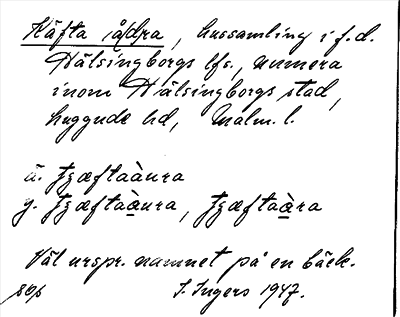 Käfta å(d)ra, hussamling i f.d.
Hälsingborgs lfs., numera
inom Hälsingborgs stad,
luggude hd, Malm. l.
ä. tʒæftaàura
y. tʒæftaàura, tʒæftaàra
Väl urspr. namnet på en bäck.
I. Ingers 1947.